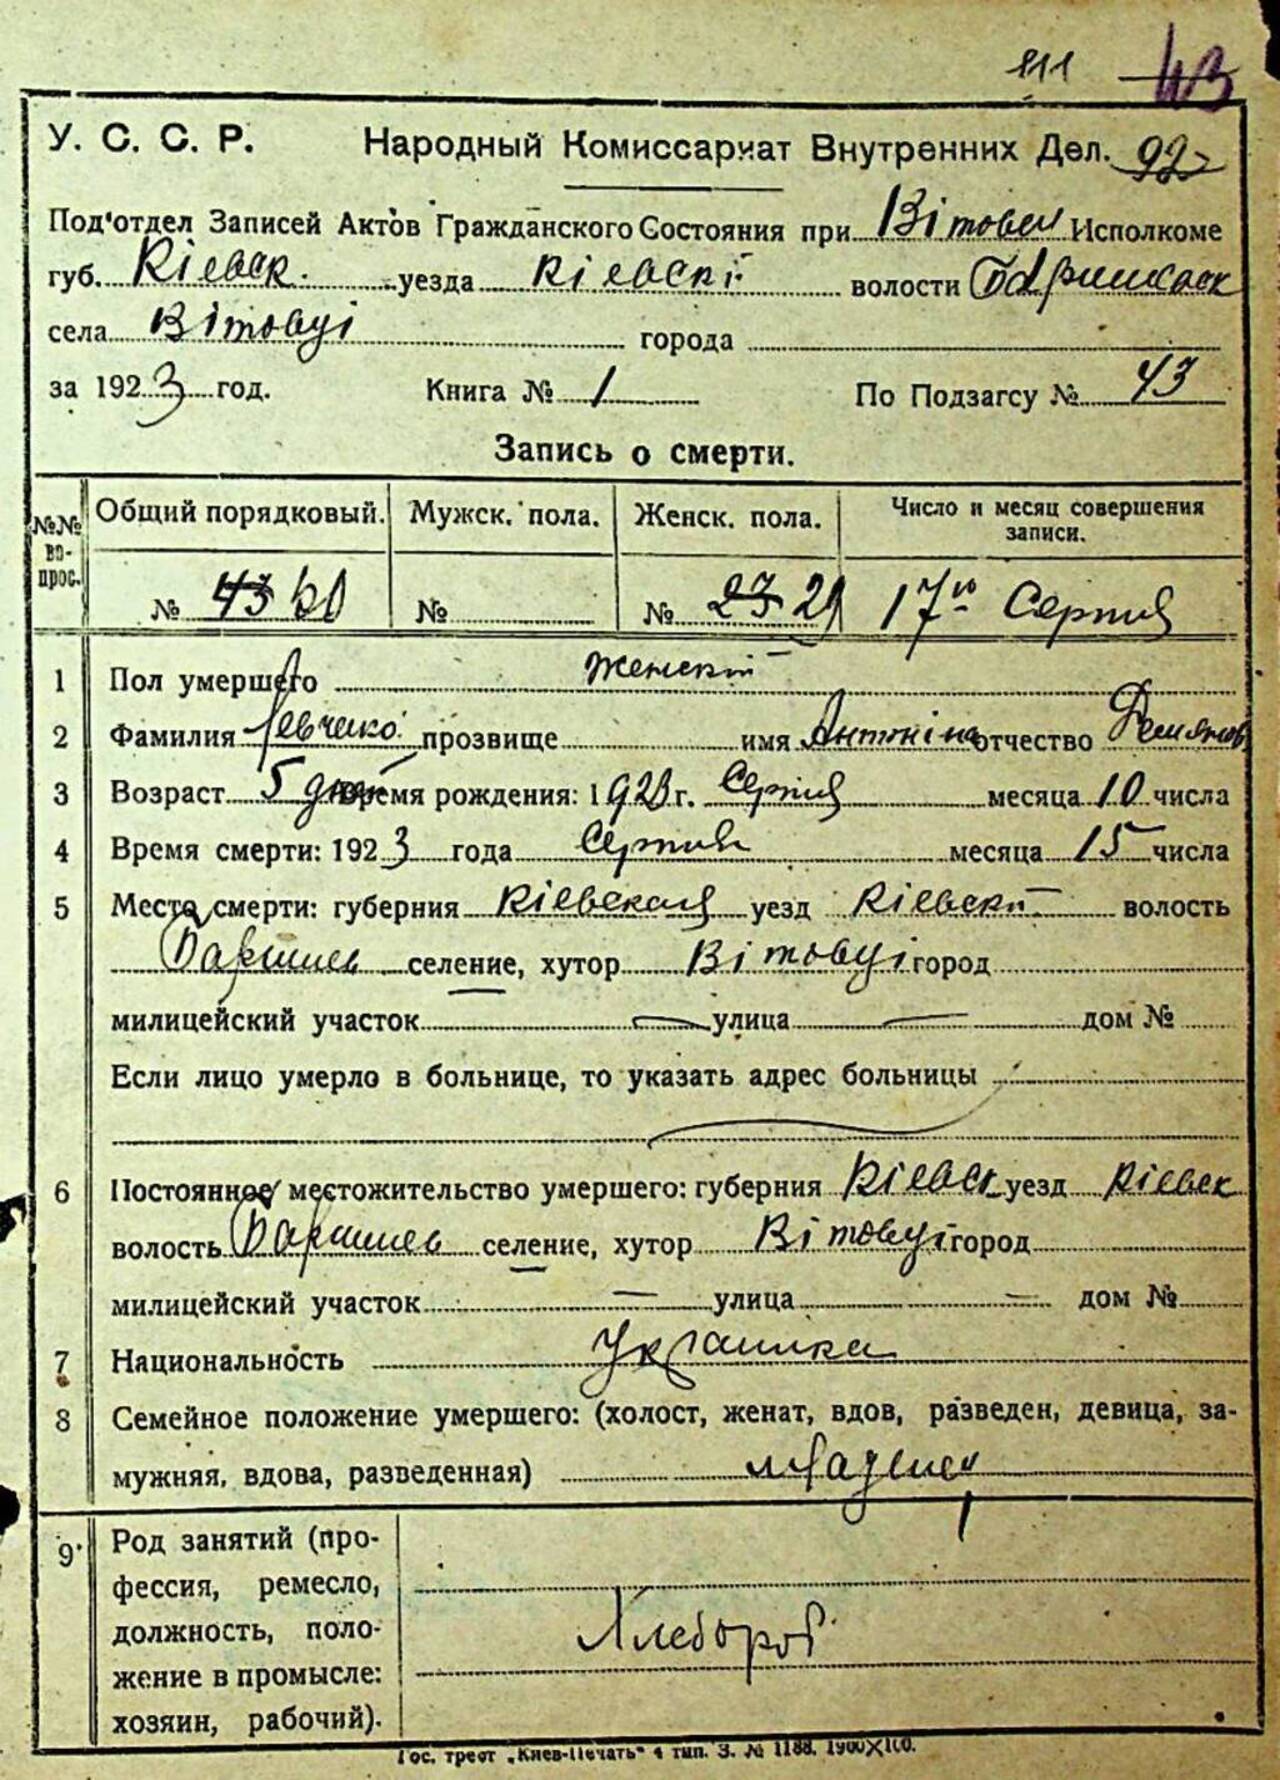 111 43
У. С. С. Р. Народный Комиссариат Внутренних Дел. 92
Под'отдел Записей Актов Гражданского Состояния при Вітовск Исполкоме
губ. Кіевск. уезда Кіевскі волости
села Вітовці города
за 1923 год. Книга № 1 По Подзагсу № 43
Запись о смерти.
№№ во-прос. Общий порядковый. Мужск. пола. Женск. пола. Число и месяц совершения записи.
№ 43 60 № № 23 29 17го Серпня
1 Пол умершего Женскій
2 Фамилия Левченко прозвище имя Антоніна отчество Демьянов
3 Возраст 5 дней Время рождения: 1923 г. Серпня месяца 10 числа
4 Время смерти: 1923 года Серпня месяца 15 числа
5 Место смерти: губерния Кіевская уезд Кіевскій волость
селение, хутор Вітовці город
милицейский участок — улица — дом №
Если лицо умерло в больнице, то указать адрес больницы
6 Постоянное местожительство умершего: губерния Кіевск уезд Кіевск
волость селение, хутор Вітовці город
милицейский участок — улица — дом №
7 Национальность Українка
8 Семейное положение умершего: (холост, женат, вдов, разведен, девица, за-
мужняя, вдова, разведенная) младенец
9 Род занятий (про-
фессия, ремесло,
должность, поло- Хлебороб
жение в промысле:
хозяин, рабочий).
Гос. трест „Киев-Печать" 4 тип. З. № 1188. 1900×100.